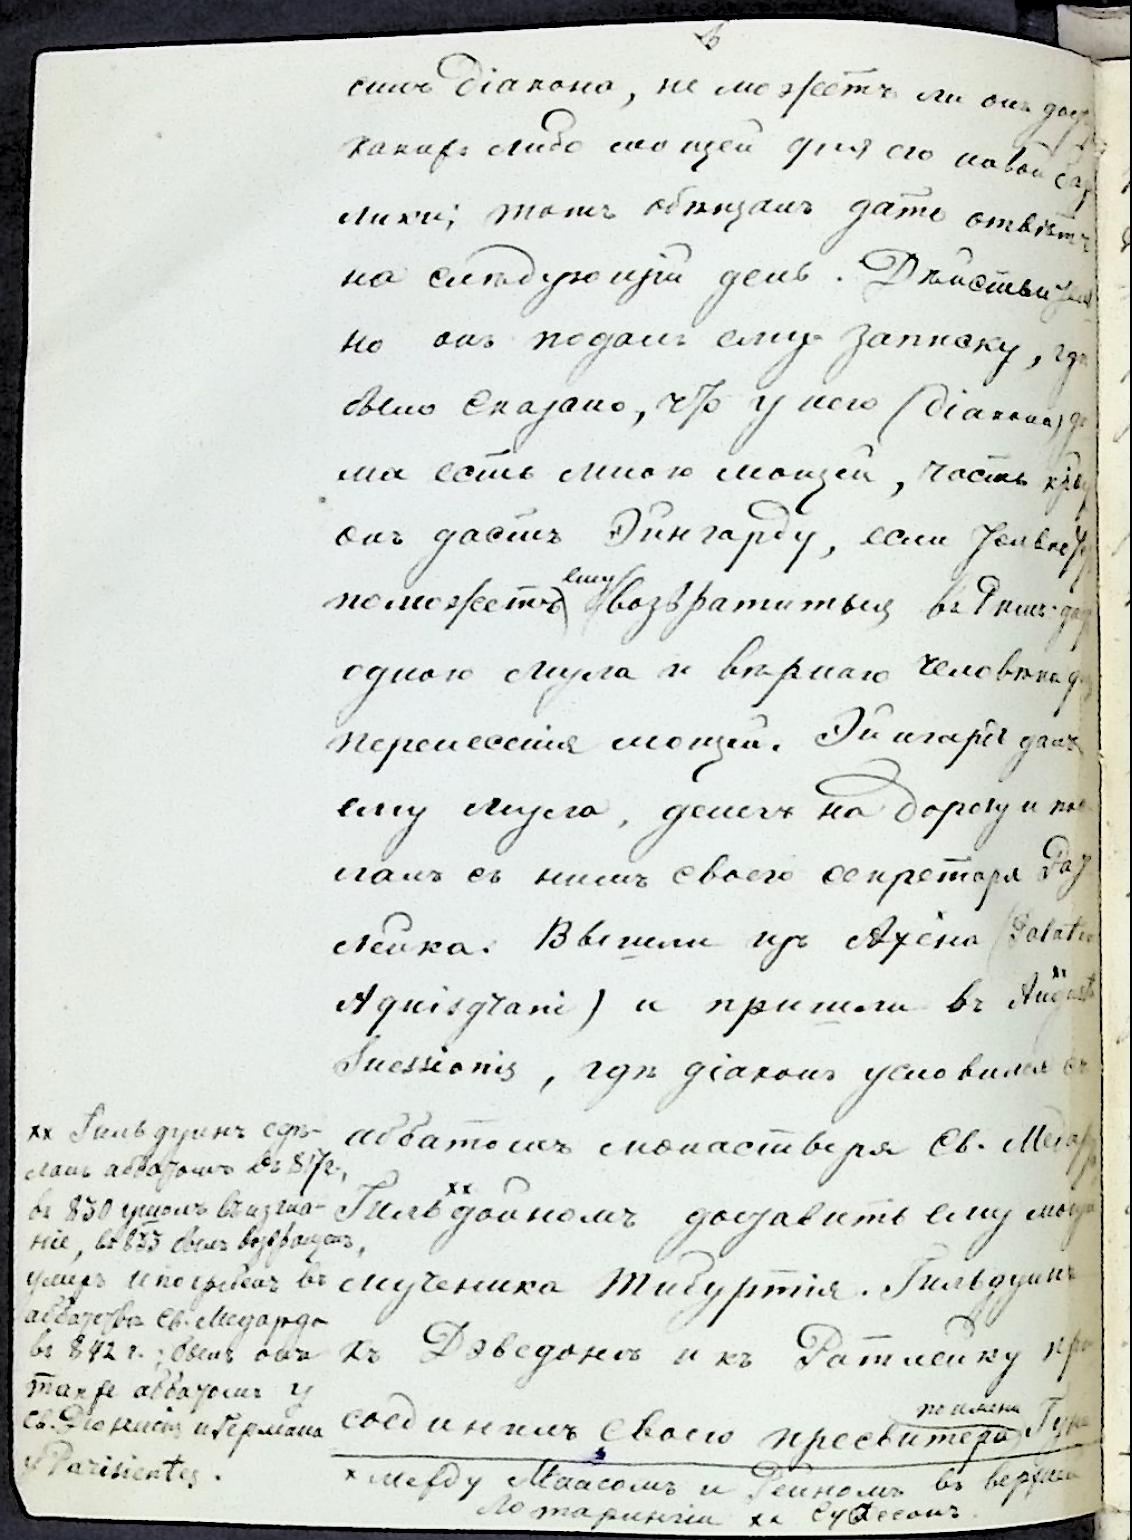 силъ діакона, не можетъ ли онъ дост
какихъ либо мощей для его новой бази
лики; тотъ обѣщалъ дать отвѣтъ
на слѣдующій день. Дѣйствитель
но онъ подалъ ему записку, гдѣ
было сказано, что у него (діакона) до
ма есть много мощей, часть к
онъ дастъ Эйнгарду, если
поможетъ ему возвратиться въ Римъ; да
одного мула и вѣрнаго человѣка для
перенесенія мощей. Эйнгардъ далъ
ему мула, денегъ на дорогу и пос
лалъ съ нимъ своего секретаря Рат
лейка. Вышли изъ Ахена (Palatio
Aquisgrani) и пришли въ Augusta xx
Suessionis, гдѣ діаконъ условился съ
аббатомъ монастыря Св. Медард
Гильдойномъ xx доставить ему мощи
мученика Тибуртія. Гильдуинъ
къ Дэведону и къ Ратлейку при
соединилъ своего пресвитера по имени Гун
x между Маасомъ и Рейномъ въ верхней
Лотарингіи xx Суассонъ.
xx Гильдуинъ сдѣ-
ланъ аббатомъ въ 817 г.,
въ 830 ушолъ въ изгна-
ніе, въ 833 былъ возвращенъ,
умеръ и погребенъ въ
аббатствѣ Св. Медарда
въ 842 г.; былъ онъ
также аббатомъ у
Св. Діонисія и Германа
у Parisientes.